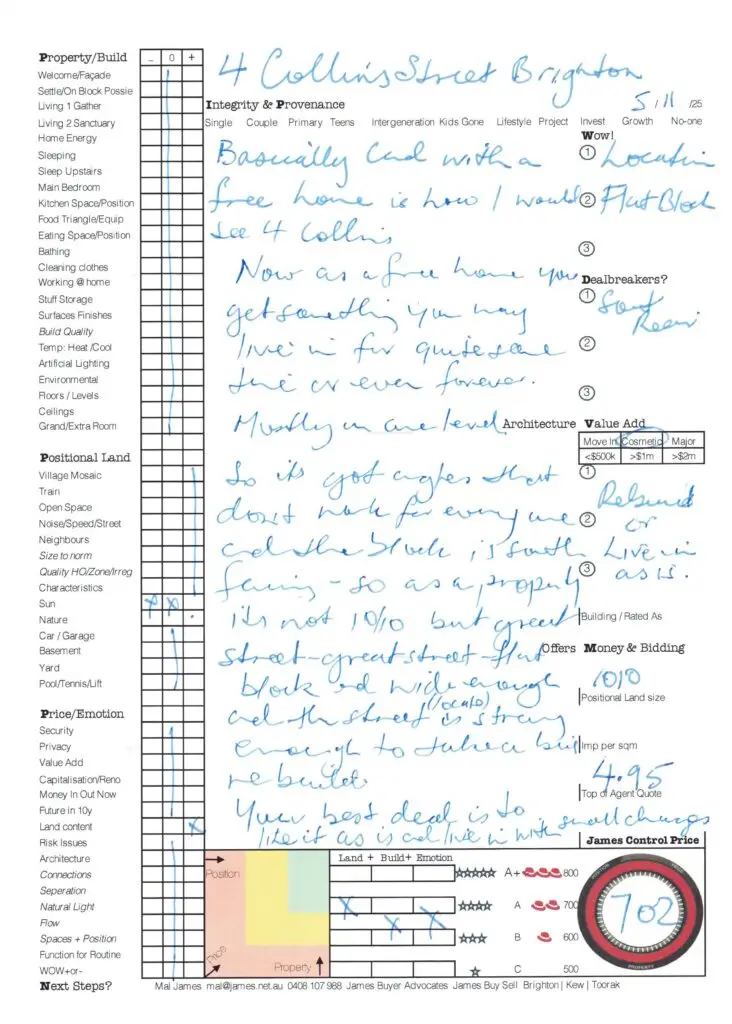 Property/Build
_ 0 +
4 Collins Street Brighton
Welcome/Façade
Settle/On Block Possie
Living 1 Gather
Living 2 Sanctuary
Home Energy
Sleeping
Sleep Upstairs
Main Bedroom
Kitchen Space/Position
Food Triangle/Equip
Eating Space/Position
Bathing
Cleaning clothes
Working @ home
Stuff Storage
Surfaces Finishes
Build Quality
Temp: Heat /Cool
Artificial Lighting
Environmental
Floors / Levels
Ceilings
Grand/Extra Room
Positional Land
Village Mosaic
Train
Open Space
Noise/Speed/Street
Neighbours
Size to norm
Quality HO/Zone/Irreg
Characteristics
Sun X X
Nature
Car / Garage
Basement
Yard
Pool/Tennis/Lift
Price/Emotion
Security
Privacy
Value Add
Capitalisation/Reno
Money In Out Now
Future in 10y
Land content X
Risk Issues
Architecture
Connections
Seperation
Natural Light
Flow
Spaces + Position
Function for Routine
WOW+or-
Next Steps?
Integrity & Provenance 5/11 /25
Single Couple Primary Teens Intergeneration Kids Gone Lifestyle Project Invest Growth No-one
Basically land with a
free home is how I would
see 4 Collins
Now as a free home you
get something you may
live in for quite some
time or even forever.
Mostly in one level
So its got angles that
don't work for everyone
and the block is south
facing - so as a property
its not 10/10 but great
street - great street - flat
block and wide enough
and the street (locato) is strong
enough to take a
rebuild
Your best deal is to
like it as is and live in with small changes
Wow!
1 Location
2 Flat Block
3
Dealbreakers?
1 South
Rear
2
3
Architecture Value Add
Move In Cosmetic Major
<$500k >$1m >$2m
1
Rebuild
2 or
Live in
3 as is.
Building / Rated As
Offers Money & Bidding
1010
Positional Land size
Imp per sqm
4.95
Top of Agent Quote
James Control Price
702
Position
Price
Property
Land + Build + Emotion
A+ 800
X A 700
X X B 600
C 500
Mal James mal@james.net.au 0408 107 988 James Buyer Advocates James Buy Sell Brighton | Kew | Toorak